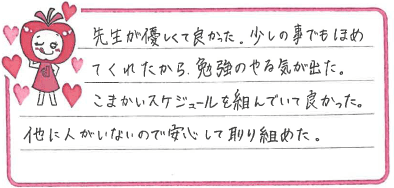 先生が優しくて良かった。少しの事でもほめ
てくれたから、勉強のやる気が出た。
こまかいスケジュールを組んでいて良かった。
他に人がいないので安心して取り組めた。